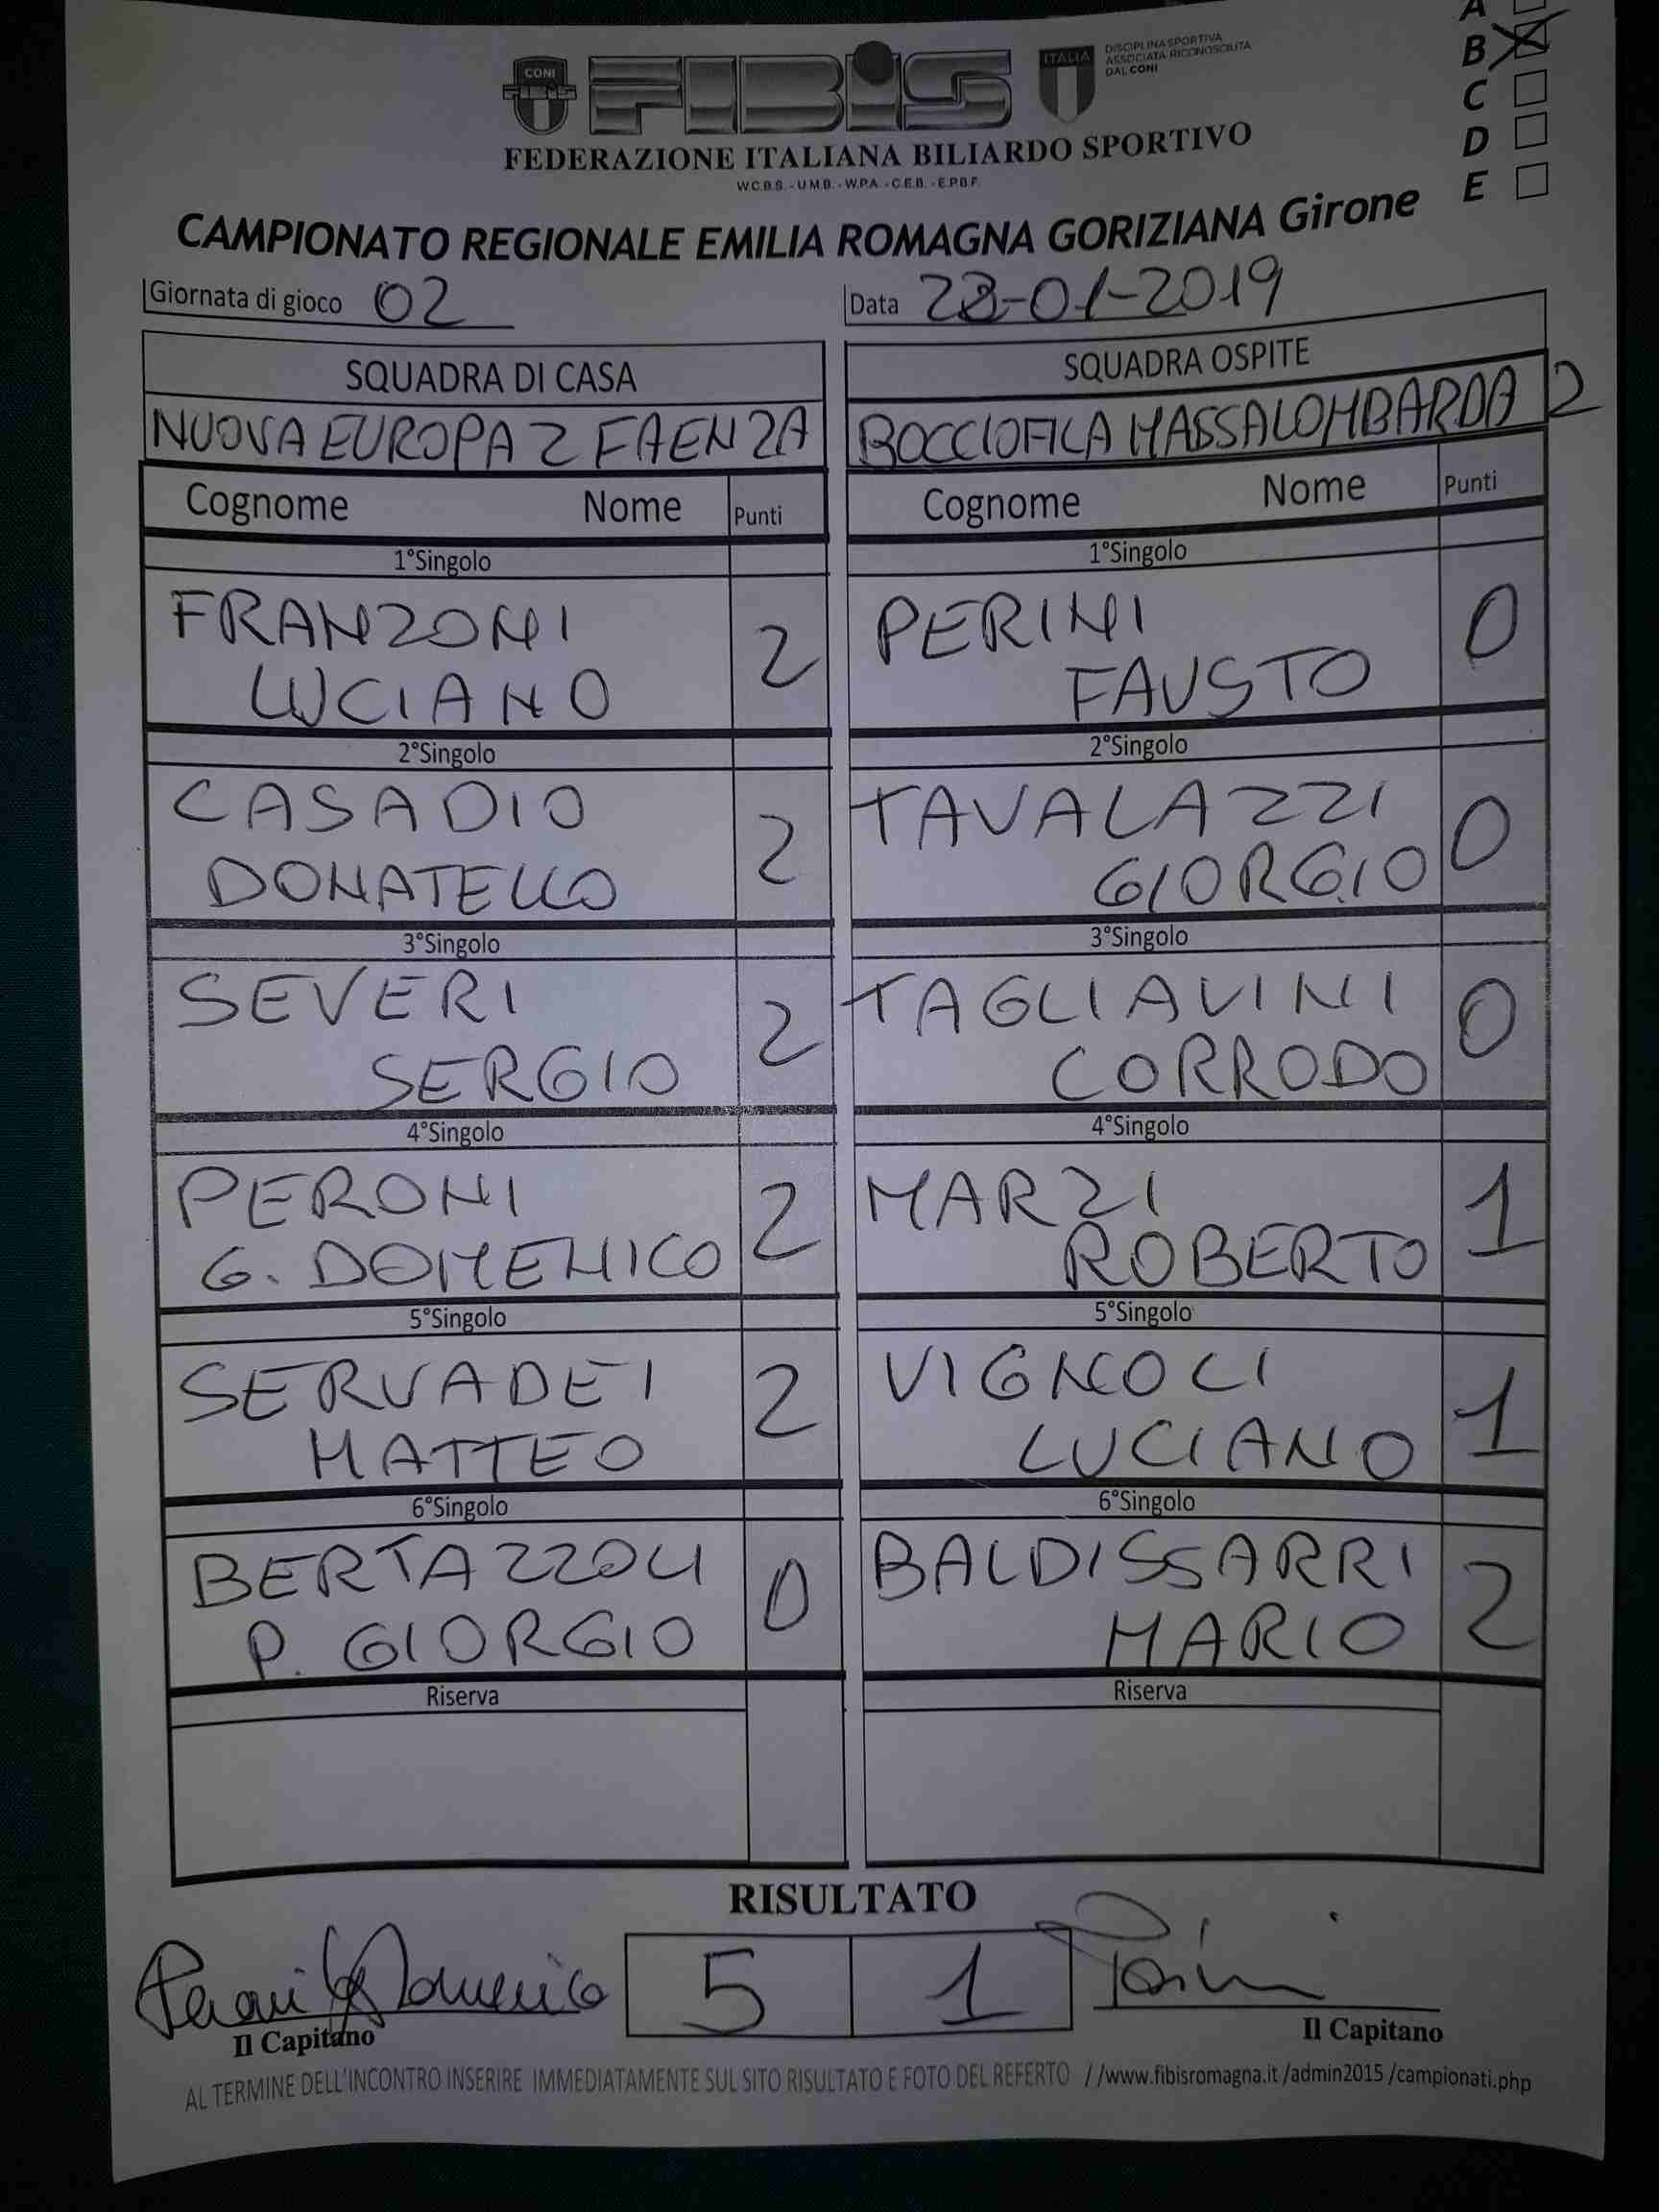 A
B
C
D
E
CONI
FIBiS
ITALIA
DISCIPLINA SPORTIVA
ASSOCIATA RICONOSCIUTA
DAL CONI
FEDERAZIONE ITALIANA BILIARDO SPORTIVO
W.C.B.S. - U.M.B. - W.P.A. - C.E.B. - E.P.B.F.
CAMPIONATO REGIONALE EMILIA ROMAGNA GORIZIANA Girone
Giornata di gioco 02 Data 28-01-2019
SQUADRA DI CASA SQUADRA OSPITE
NUOVA EUROPA 2 FAENZA BOCCIOFILA MASSALOMBARDA 2
Cognome Nome Punti Cognome Nome Punti
1°Singolo 1°Singolo
FRANZONI 2 PERINI 0
LUCIANO FAUSTO
2°Singolo 2°Singolo
CASADIO 2 TAVALAZZI 0
DONATELLO GIORGIO
3°Singolo 3°Singolo
SEVERI 2 TAGLIAVINI 0
SERGIO CORRODO
4°Singolo 4°Singolo
PERONI 2 MARZI 1
G. DOMENICO ROBERTO
5°Singolo 5°Singolo
SERVADEI 2 VIGNOLI 1
MATTEO LUCIANO
6°Singolo 6°Singolo
BERTAZZOLI 0 BALDISSARRI 2
P. GIORGIO MARIO
Riserva Riserva
RISULTATO
5 1
Il Capitano Il Capitano
AL TERMINE DELL'INCONTRO INSERIRE IMMEDIATAMENTE SUL SITO RISULTATO E FOTO DEL REFERTO //www.fibisromagna.it /admin2015 /campionati.php